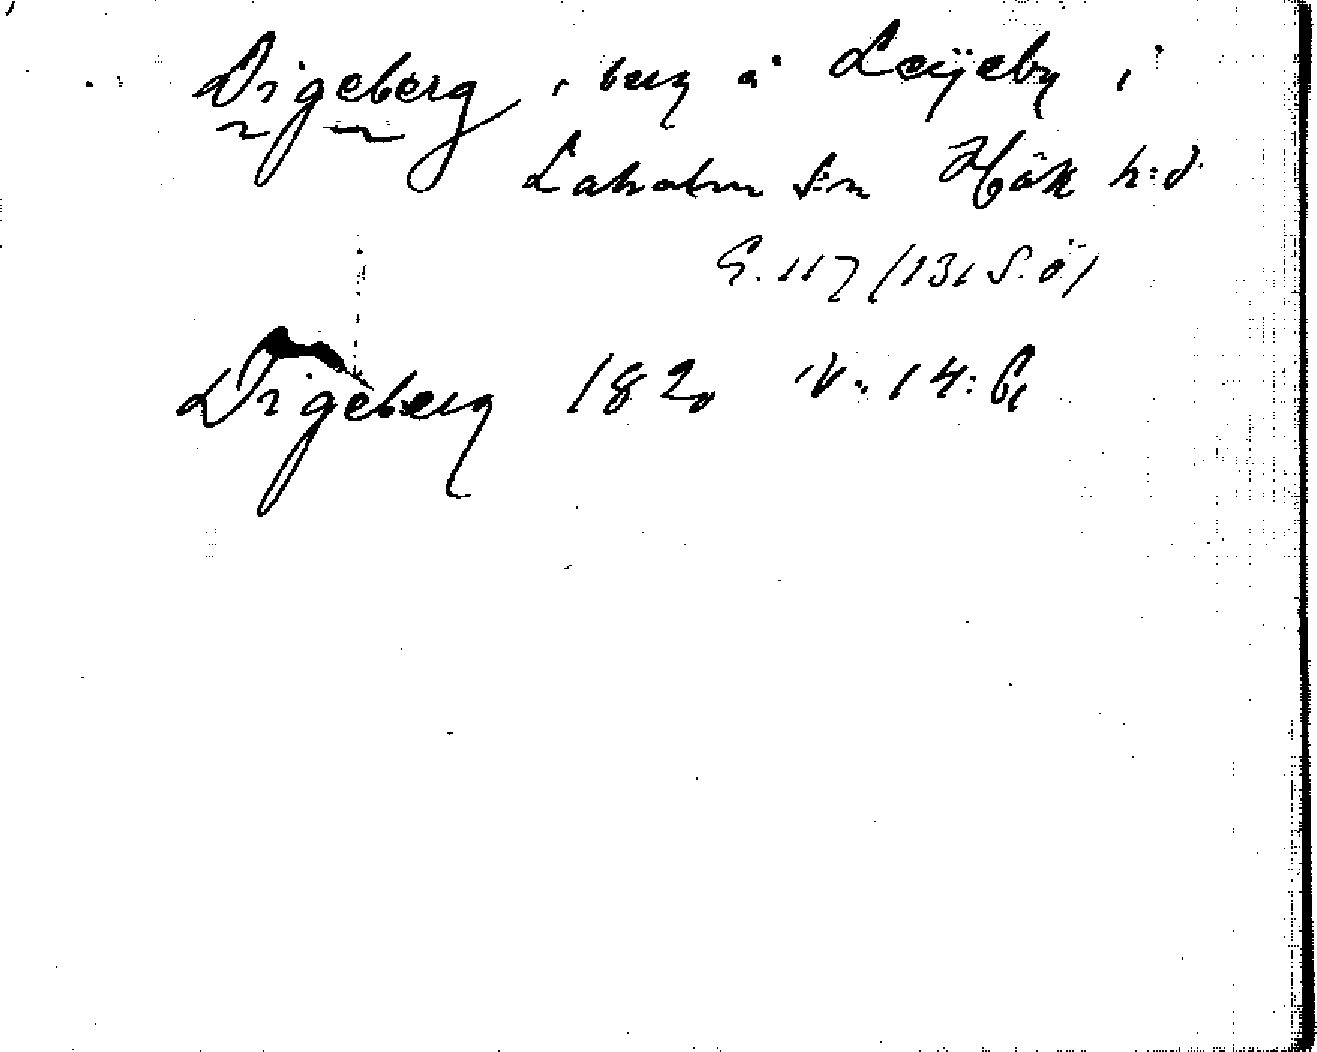 Digeberg, berg å Lejeby i
Laholm sn Hök h:d
G. 117 (131 S. Ö)
Digeberg 1820 V: 14: 61